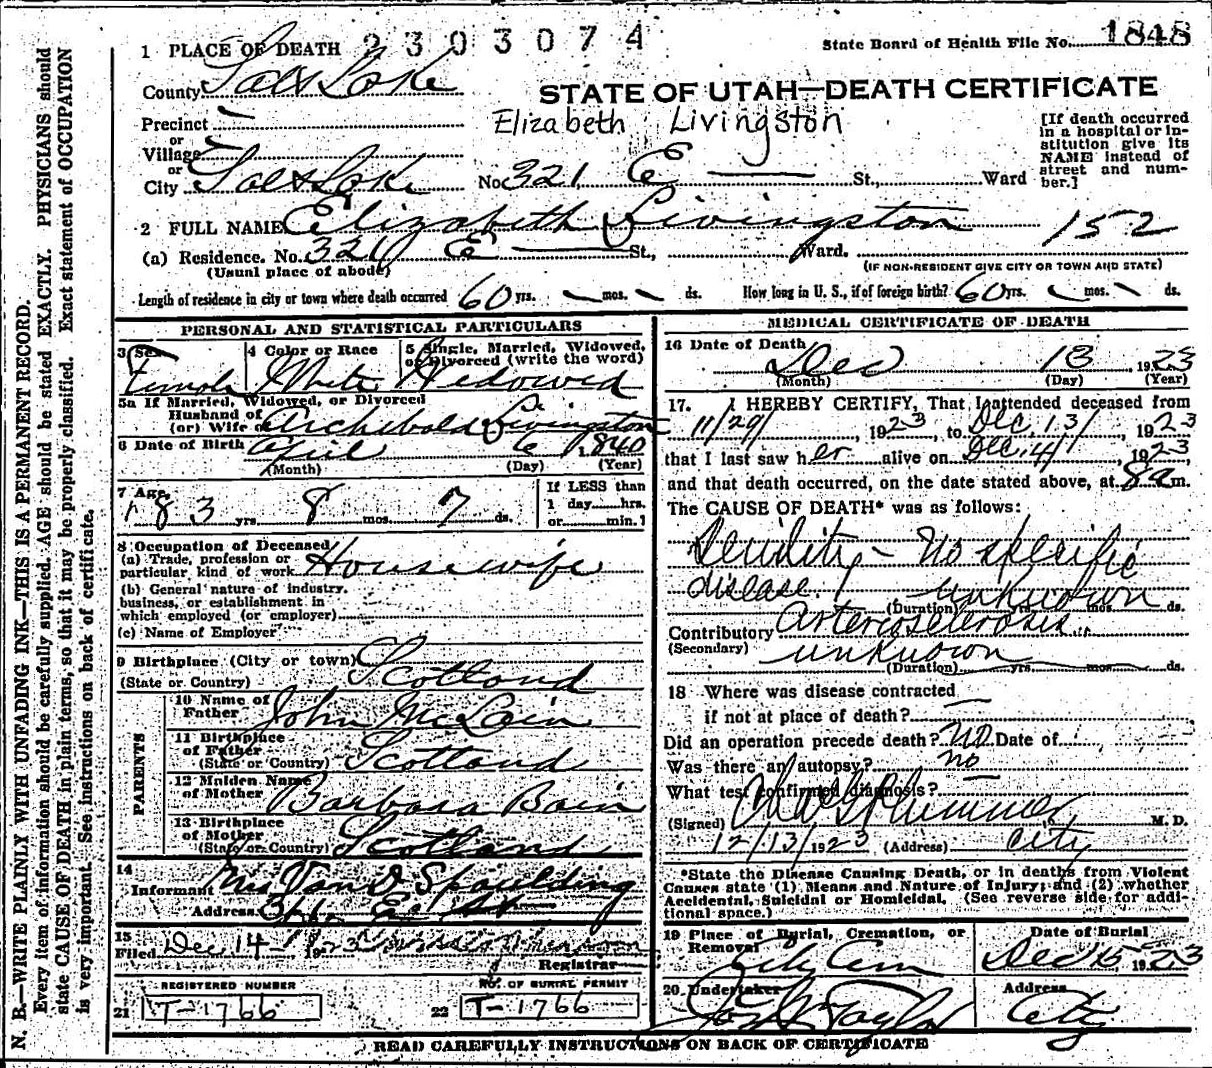 1 PLACE OF DEATH 2303074
State Board of Health File No. 1848
County Salt Lake
STATE OF UTAH—DEATH CERTIFICATE
Precinct
or
Village
or
City Salt Lake
Elizabeth Livingston
No. 321 E St., Ward
[If death occurred
in a hospital or in-
stitution give its
NAME instead of
street and num-
ber.]
2 FULL NAME Elizabeth Livingston 152
(a) Residence. No. 321 E St., Ward.
(Usual place of abode)
(IF NON-RESIDENT GIVE CITY OR TOWN AND STATE)
Length of residence in city or town where death occurred 60 yrs. mos. ds. How long in U. S., if of foreign birth? 60 yrs. mos. ds.
PERSONAL AND STATISTICAL PARTICULARS
3 Sex
Female
4 Color or Race
White
5 Single, Married, Widowed,
or Divorced (write the word)
Widowed
5a If Married, Widowed, or Divorced
Husband of
(or) Wife of Archibald Livingston
6 Date of Birth April 6 1840
(Month) (Day) (Year)
7 Age
83 yrs. 8 mos. 7 ds.
If LESS than
1 day hrs.
or min.?
8 Occupation of Deceased
(a) Trade, profession or
particular kind of work Housewife
(b) General nature of industry,
business, or establishment in
which employed (or employer)
(c) Name of Employer
9 Birthplace (City or town)
(State or Country) Scotland
PARENTS
10 Name of
Father John McLain
11 Birthplace
of Father
(State or Country) Scotland
12 Maiden Name
of Mother Barbara Bain
13 Birthplace
of Mother
(State or Country) Scotland
14
Informant Mrs Van D. Spaulding
Address E St
15
Filed Dec 14 1923
Registrar
REGISTERED NUMBER
21 T-1766
NO. OF BURIAL PERMIT
22 T-1766
MEDICAL CERTIFICATE OF DEATH
16 Date of Death
Dec 13, 1923
(Month) (Day) (Year)
17. I HEREBY CERTIFY, That I attended deceased from
11/29/, 1923, to Dec. 13/ 1923
that I last saw her alive on Dec. 4/, 1923,
and that death occurred, on the date stated above, at 8 a m.
The CAUSE OF DEATH* was as follows:
Senility - No specific
disease. unknown
(Duration) yrs. mos. ds.
Contributory Arteriosclerosis
(Secondary) unknown
(Duration) yrs. mos. ds.
18 Where was disease contracted
if not at place of death?
Did an operation precede death? No Date of
Was there an autopsy? no
What test confirmed diagnosis?
(Signed) Plummer M. D.
12/13/1923 (Address) City
*State the Disease Causing Death, or in deaths from Violent
Causes state (1) Means and Nature of Injury; and (2) whether
Accidental, Suicidal or Homicidal. (See reverse side for addi-
tional space.)
19 Place of Burial, Cremation, or
Removal
City Cem
Date of Burial
Dec 15 1923
20 Undertaker
Jos Taylor
Address
City
READ CAREFULLY INSTRUCTIONS ON BACK OF CERTIFICATE
N. B.—WRITE PLAINLY WITH UNFADING INK—THIS IS A PERMANENT RECORD.
Every item of information should be carefully supplied. AGE should be stated EXACTLY. PHYSICIANS should
state CAUSE OF DEATH in plain terms, so that it may be properly classified. Exact statement of OCCUPATION
is very important. See instructions on back of certificate.